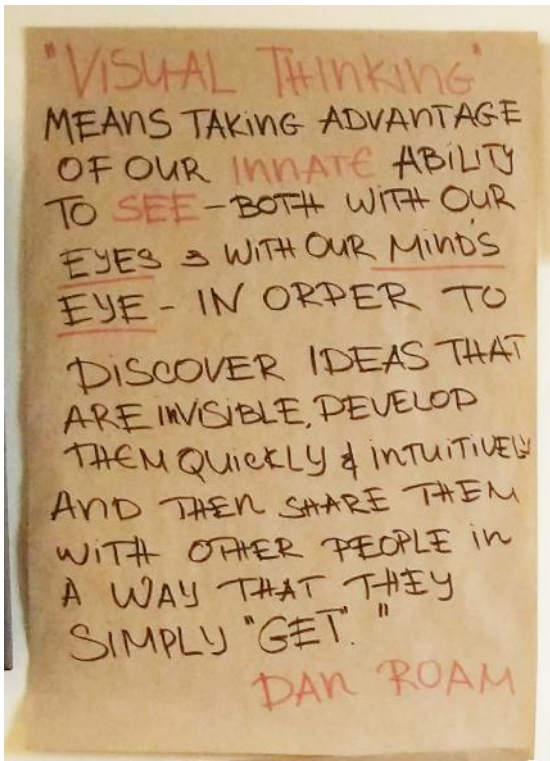 "VISUAL THINKING"
MEANS TAKING ADVANTAGE
OF OUR INNATE ABILITY
TO SEE – BOTH WITH OUR
EYES & WITH OUR MIND'S
EYE – IN ORDER TO
DISCOVER IDEAS THAT
ARE INVISIBLE, DEVELOP
THEM QUICKLY & INTUITIVELY
AND THEN SHARE THEM
WITH OTHER PEOPLE in
A WAY THAT THEY
SIMPLY "GET". "
DAN ROAM